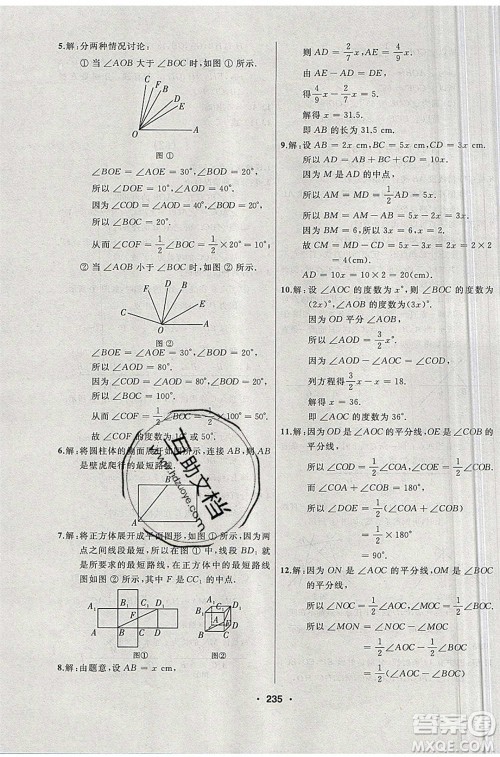 5.解：分两种情况讨论：
① 当 ∠AOB 大于 ∠BOC 时，如图 ① 所示.
C F B D E O A
图 ①
∠BOE = ∠AOE = 30°，∠BOD = 20°，
所以 ∠DOE = 10°.
因为 ∠COD = 40°，所以 ∠BOC = 20°.
从而 ∠COF = 1/2 ∠BOC = 1/2 × 20° = 10°.
② 当 ∠AOB 小于 ∠BOC 时，如图 ② 所示.
C F D E B O A
图 ②
∠BOE = ∠AOE = 30°，∠BOD = 20°，
所以 ∠AOD = 80°.
因为 ∠COD = 40°，所以 ∠AOC = 120°.
从而 ∠COF = 1/2 ∠AOC
故 ∠COF 的度数为 10°
6.解：将圆柱体的侧面展开如图所示，连接 AB，则 AB
是壁虎爬行的最短路线.
7.解：将正方体展开成平面图形，如图 ① 所示，因为两
点之间线段最短，所以沿图 ① 中的线段
就是所要求的最短路线，在正方体中的最短路线图
如图 ② 所示，其中 F 是 CC₁ 的中点.
图①
图②
8.解：由题意，设 AB = x cm，
则 AD = 2/7 x，AE = 4/9 x.
由 AE − AD = DE，
得 4/9 x − 2/7 x = 5.
解得 x = 31.5.
即 AB 的长为 31.5 cm.
9.解：设 AB = 2x cm，BC = 5x cm，CD = 3x cm，
所以 AD = AB + BC + CD = 10x cm.
因为 M 是 AD 的中点，
所以 AM = MD = 1/2 AD = 5x，
所以 BM = AM − AB = 5x − 2x = 3x.
因为 BM = 6，所以 3x = 6，x = 2.
故 CM = MD − CD = 5x − 3x = 2x = 2 × 2
= 4(cm).
AD = 10x = 10 × 2 = 20(cm).
10.解：设 ∠AOC 的度数为 x°，则 ∠BOC 的度数为
(2x)°，所以 ∠AOB 的度数为 (3x)°.
因为 OD 平分 ∠AOB，所以 ∠AOD = 3/2 x°.
因为 ∠AOD = ∠AOC + ∠COD，
列方程得 3/2 x = x + 18.
解得 x = 36.
即 ∠AOC 的度数为 36°.
11.解：因为 OD 是 ∠AOC 的平分线，OE 是 ∠COB 的平
分线，所以 ∠COD = 1/2 ∠COA，∠COE = 1/2 ∠COB.
因为 ∠COA + ∠COB = 180°，
所以 ∠DOE = 1/2(∠COA + ∠COB)
= 1/2 × 180°
= 90°
12.解：因为 ON 是 ∠AOC 的平分线，OM 是 ∠BOC
的平分线，
所以 ∠NOC = 1/2 ∠AOC，∠MOC = 1/2 ∠BOC.
所以 ∠MON = ∠NOC − ∠MOC
= 1/2 ∠AOC − 1/2 ∠BOC
= 1/2 (∠AOC − ∠BOC)
235
互助文档
www.hdzuoye.com
答案圈